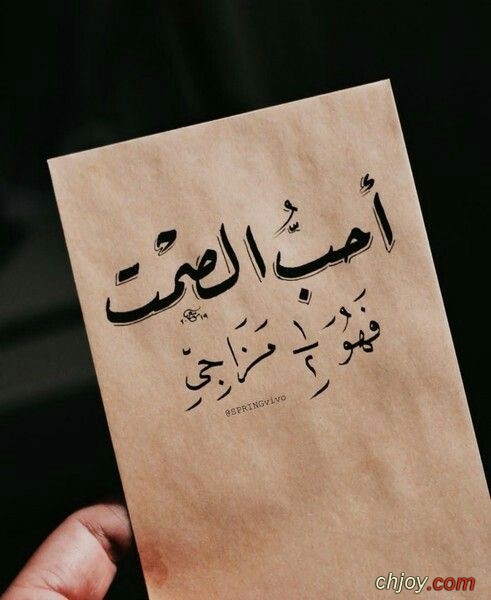 أُحبُّ الصمْت
فَهُوَ ١/٢ مَزَاجِيّ
٢٠١٩
@SPRINGvivo
chjoy.com